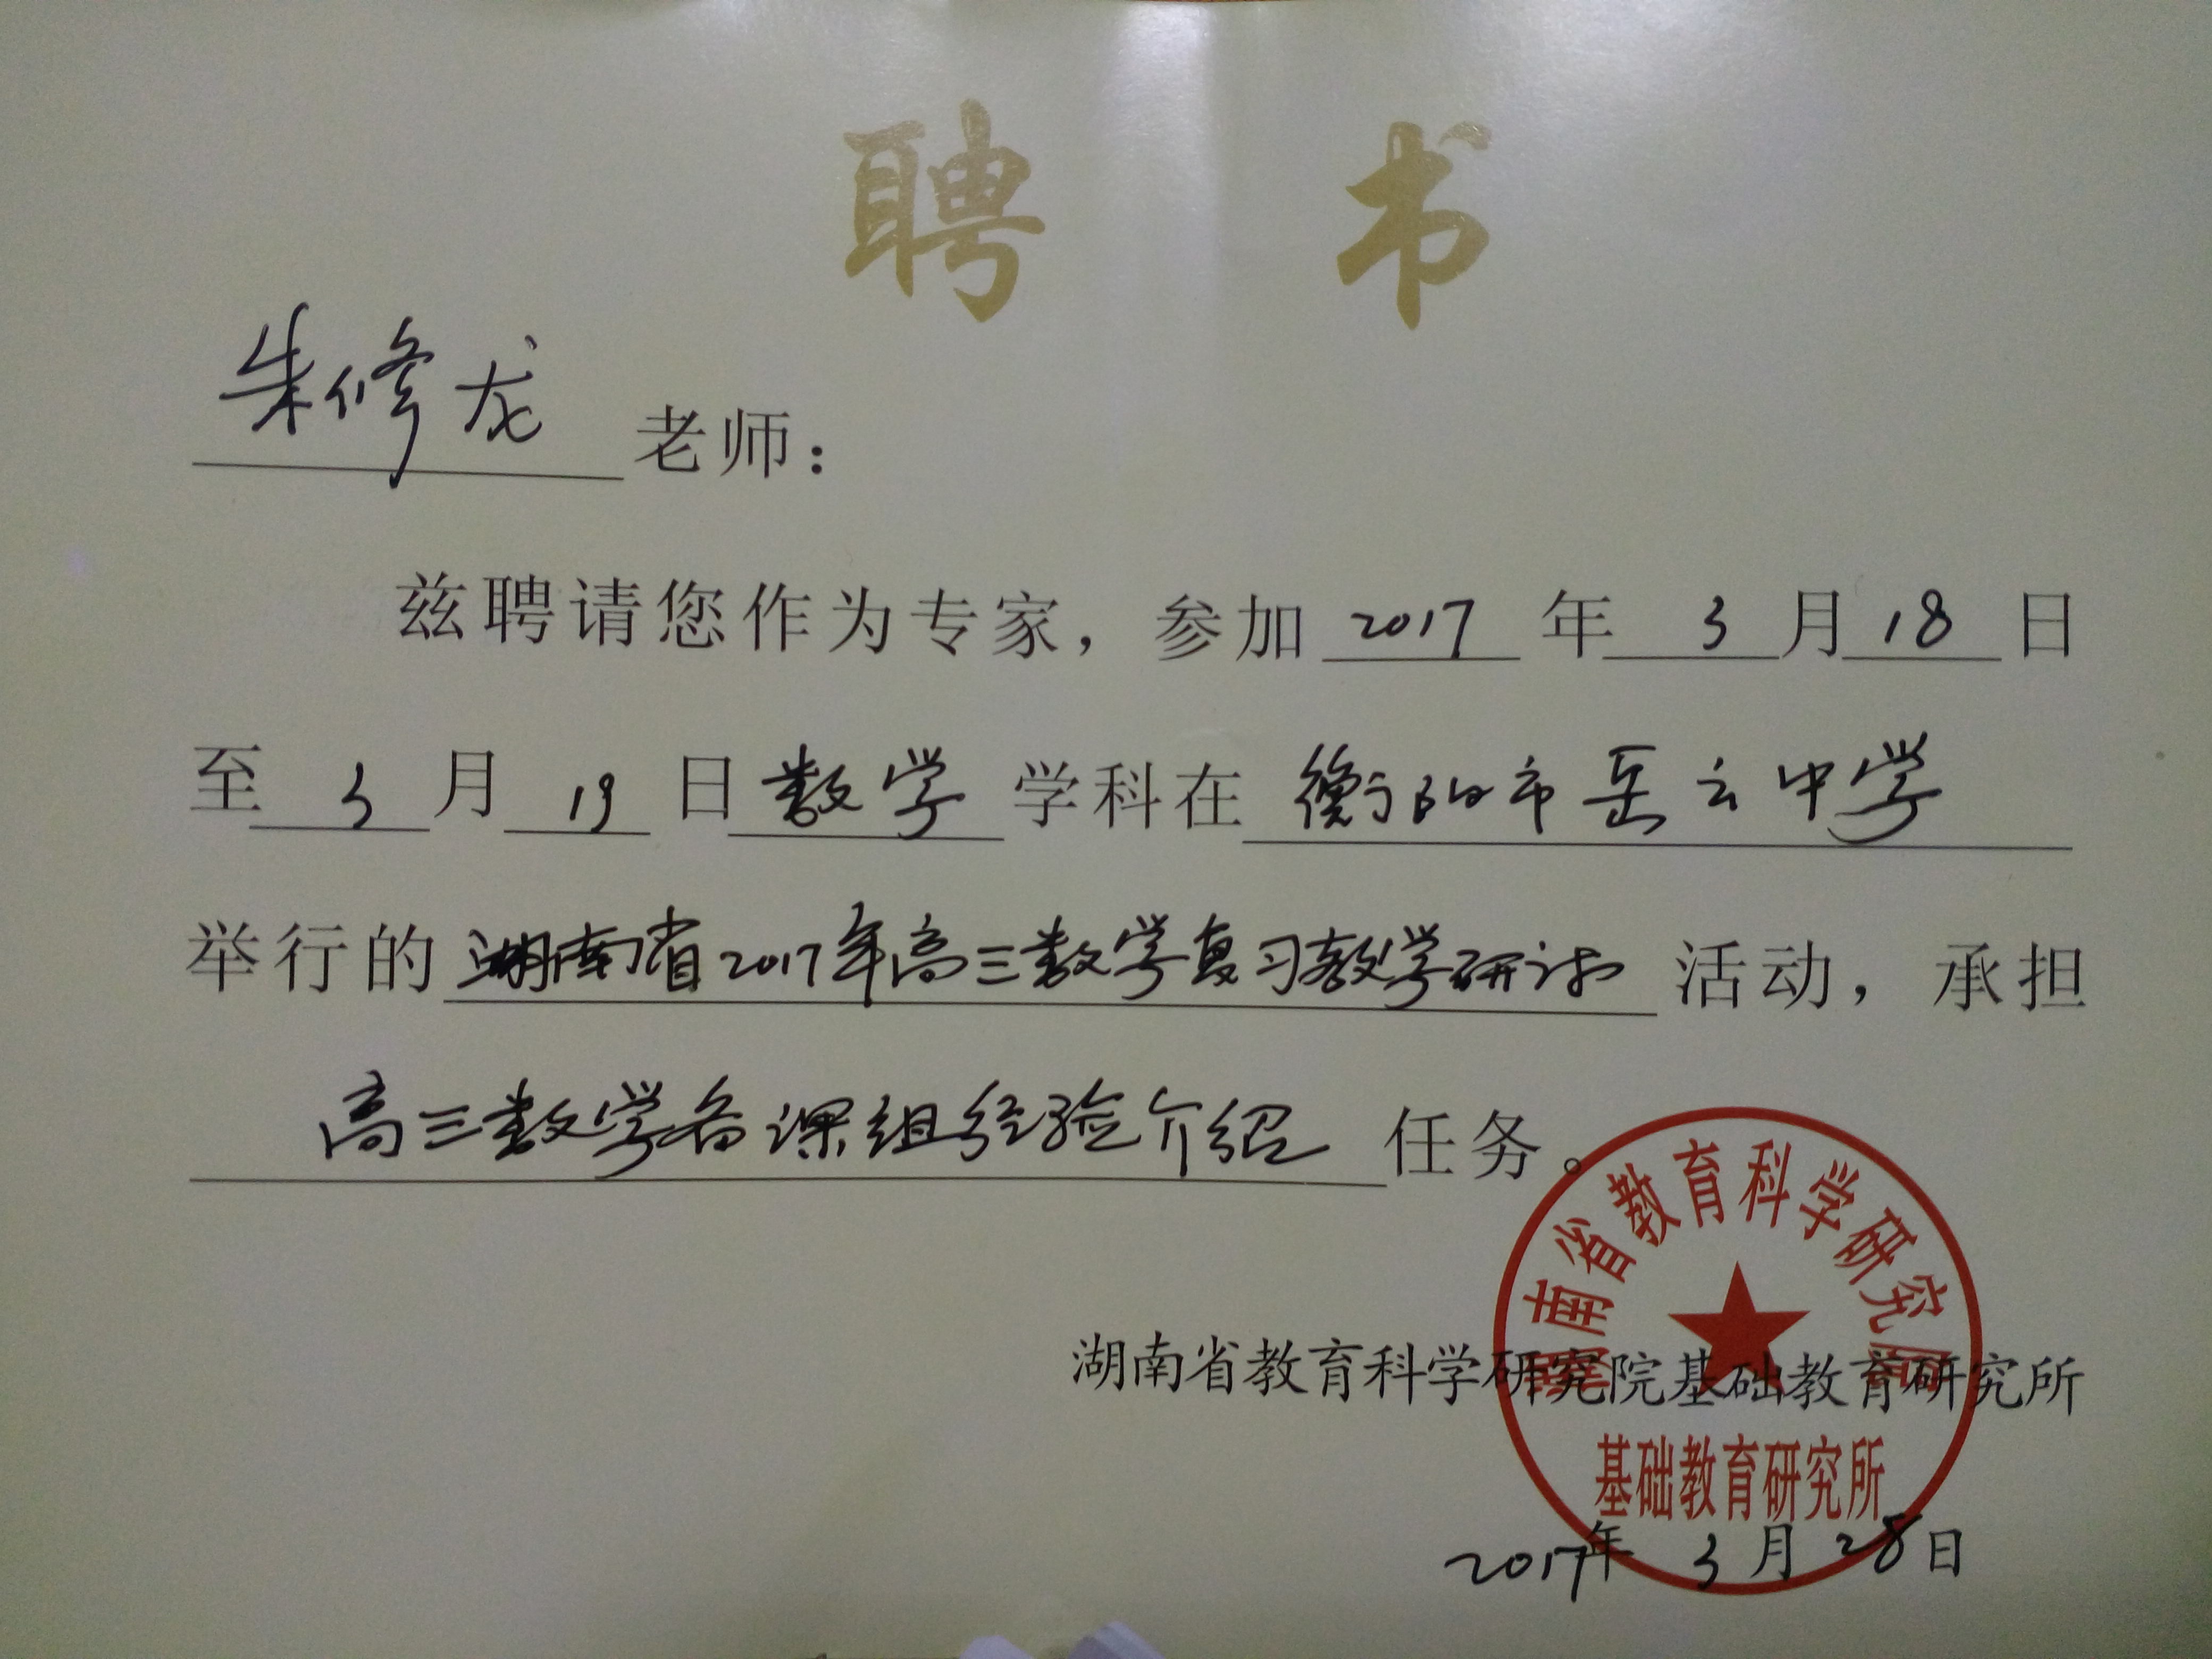 聘书
朱修龙老师：
兹聘请您作为专家，参加 2017 年 3 月 18 日
至 3 月 19 日 数学 学科在 衡阳市岳云中学
举行的 湖南省2017年高三数学复习教学研讨 活动，承担
高三数学备课组经验介绍 任务。
湖南省教育科学研究院
湖南省教育科学研究院基础教育研究所
基础教育研究所
2017年 3 月 28 日